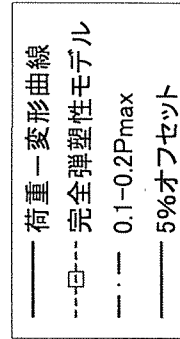 荷重ー変形曲線
完全弾塑性モデル
0.1-0.2Pmax
5%オフセット